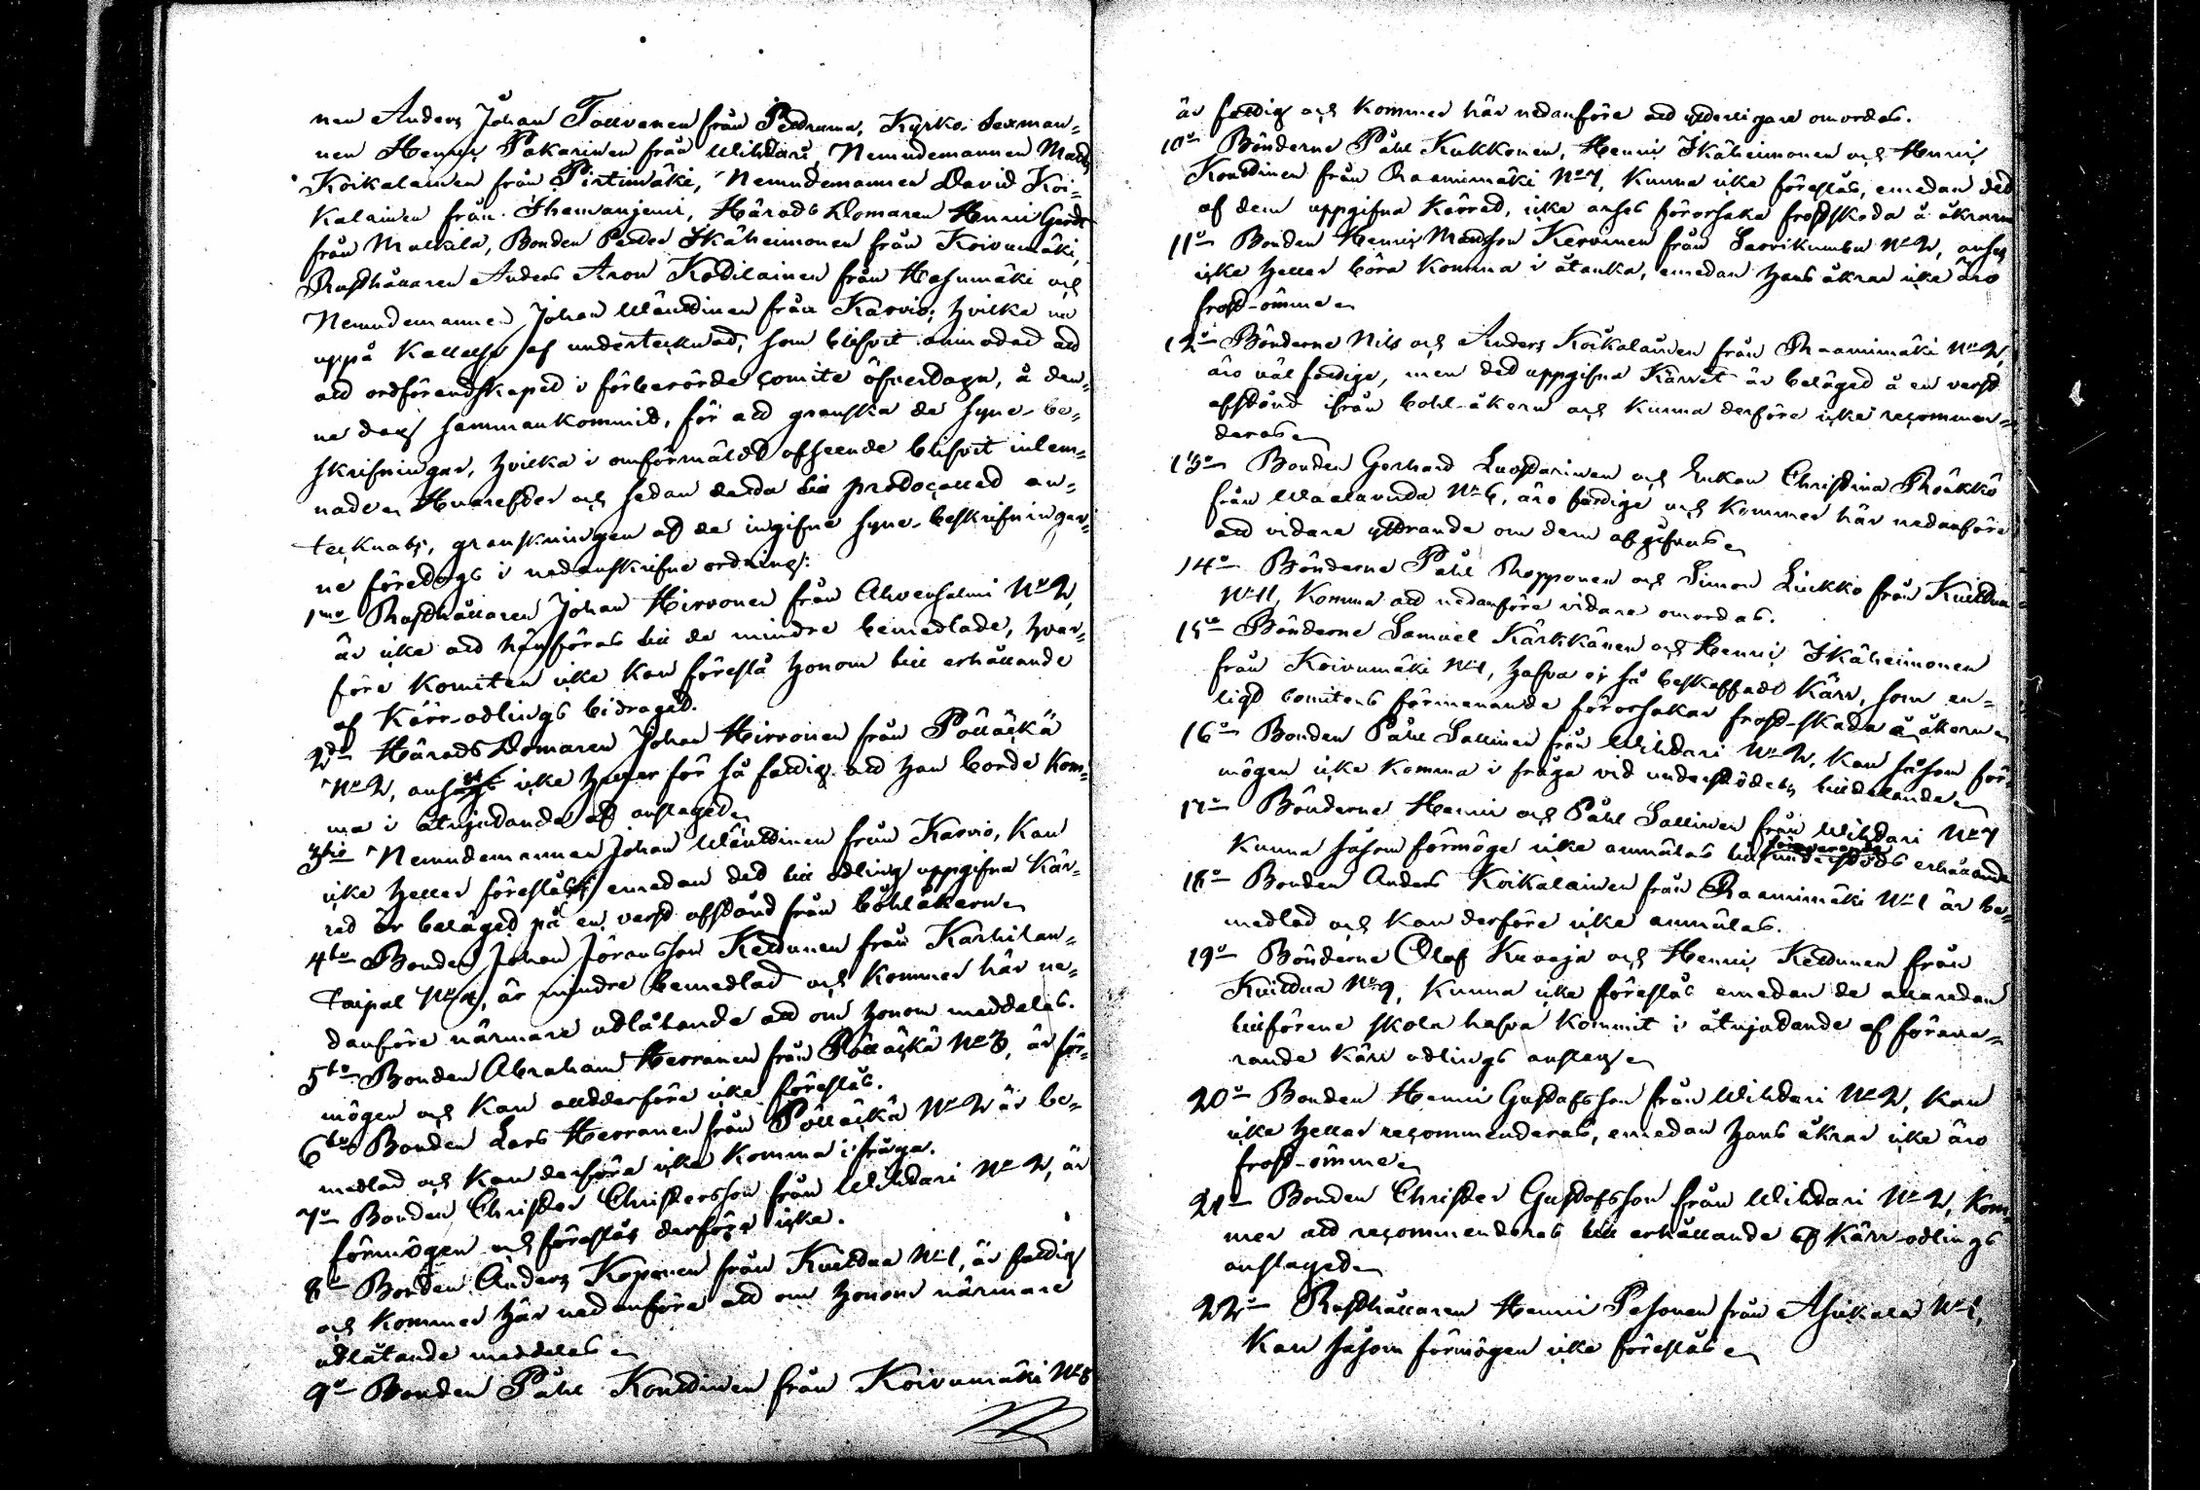 nen Anders Johan Tollvanen från Petruma, Kyrko-Sexman=
nen Henric Pakarinen från Wihtari, Nemndemannen Matts
Koikalainen från Pirtimäki, Nemndemannen David Koi=
kalainen från Ihamaniemi, Härads Domaren Henric
från Malkila, Bonden Petter Ikäheimonen från Koivumäki,
Rusthållaren Anders Aron Kotilainen från Hasumäki och
Nemndemannen Johan Wänttinen från Karvio; hvilka nu
uppå kallelse af undertecknad, som blifvit anmodad att
att ordförandskapet i förberörde Comité öfvertaga, å den=
na dag sammankommit, för att granska de syne-be=
skrifningar, hvilka i omförmäldt afseende blifvit inlem=
nade. Hvarefter och sedan detta till protocollet an=
tecknats, granskningen af de ingifne syne-beskrifningar=
ne företogs i nedanskrifne ordning:
1mo Rusthållaren Johan Hirvonen från Ahvensalmi No 2,
är icke att hänföras till de mindre bemedlade, hvar=
före Komiten icke kan föreslå honom till erhållande
af Kärr-odlings bidraget.
2do Härads Domaren Johan Hirvonen från Pölläckä
No 2, anses icke heller för så fattig att han borde kom=
ma i åtnjutande af anslaget.
3tio Nemndemannen Johan Wänttinen från Karvio, kan
icke heller föreslås, emedan det till odling uppgifna Kär=
ret är beläget på en verst afstånd från bohlåkern.
4to Bonden Johan Jöransson Kettunen från Karhilan=
taipal No 4, är mindre bemedlad och kommer här ne=
danföre närmare utlåtande att om honom meddelas.
5to Bonden Abraham Herranen från Pölläckä No 3, är för=
mögen och kan alltderföre icke föreslås.
6to Bonden Lars Herranen från Pölläckä No 2 är be=
medlad och kan derföre icke komma i fråga.
7o Bonden Christer Christersson från Wihtari No 2, är
förmögen och föreslås derföre icke.
8o Bonden Anders Koponen från Kuittua No 1, är fattig
och kommer här nedanföre att om honom närmare
utlåtande meddelas.
9o Bonden Påhl Konttinen från Koivumäki No 8
är fattig och kommer här nedanföre att ytterligare omordas.
10o Bönderne Påhl Kukkonen, Henric Ikäheimonen och Henric
Konttinen från Raanimäki No 7, kunna icke föreslås, emedan det
af dem uppgifna Kärret, icke anses förorsaka frostskada å åkrarne
11o Bonden Henric Mattsson Kervinen från Sarvikumbu No 2, anses
icke heller böra komma i åtanka, emedan hans åkrar icke äro
frost-ömme.
12o Bönderne Nils och Anders Koikalainen från Raanimäki No 2,
äro väl fattige, men det uppgifna Kärret är beläget å en verst
afstånd ifrån bohl-åkern och kunna derföre icke recommen=
deras.
13o Bonden Gerhard Luostarinen och Enkan Christina Räkkö
från Waaluvuta No 6, äro fattige och kommer här nedanföre
att vidare yttrande om dem afgifvas.
14o Bönderne Påhl Ropponen och Simon Luikko från Kuittua
No 11, komma att nedanföre vidare omordas.
15o Bönderne Samuel Kärkkänen och Henric Ikäheimonen
från Koivumäki No 1, hafva ej så beskaffadt Kärr, som en=
ligt Comitens förmenande förorsakar frost-skada å åkern.
16o Bonden Påhl Sallinen från Wihtari No 2, kan såsom för=
mögen icke komma i fråga vid understödets tilldelande.
17o Bönderne Henric och Påhl Sallinen från Wihtari No 7
kunna såsom förmögne icke anmälas till förevarande understöds erhållande
18o Bonden Anders Koikalainen från Raanimäki No 1 är be=
medlad och kan derföre icke anmälas.
19o Bönderne Olof Kuraja och Henric Kettunen från
Kuittua No 9, kunna icke föreslås emedan de allaredan
tillförene skola hafva kommit i åtnjutande af förava=
rande Kärr odlings anslag.
20o Bonden Henric Gustafsson från Wihtari No 2, kan
icke heller recommenderas, emedan hans åkrar icke äro
frost-ömme.
21o Bonden Christer Gustafsson från Wihtari No 2, kom=
mer att recommenderas till erhållande af Kärr-odlings
anslaget.
22o Rusthållaren Henric Pesonen från Asikala No 1,
kan såsom förmögen icke föreslås.